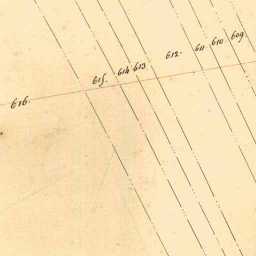 616. 615. 614 613 612. 611 610 609